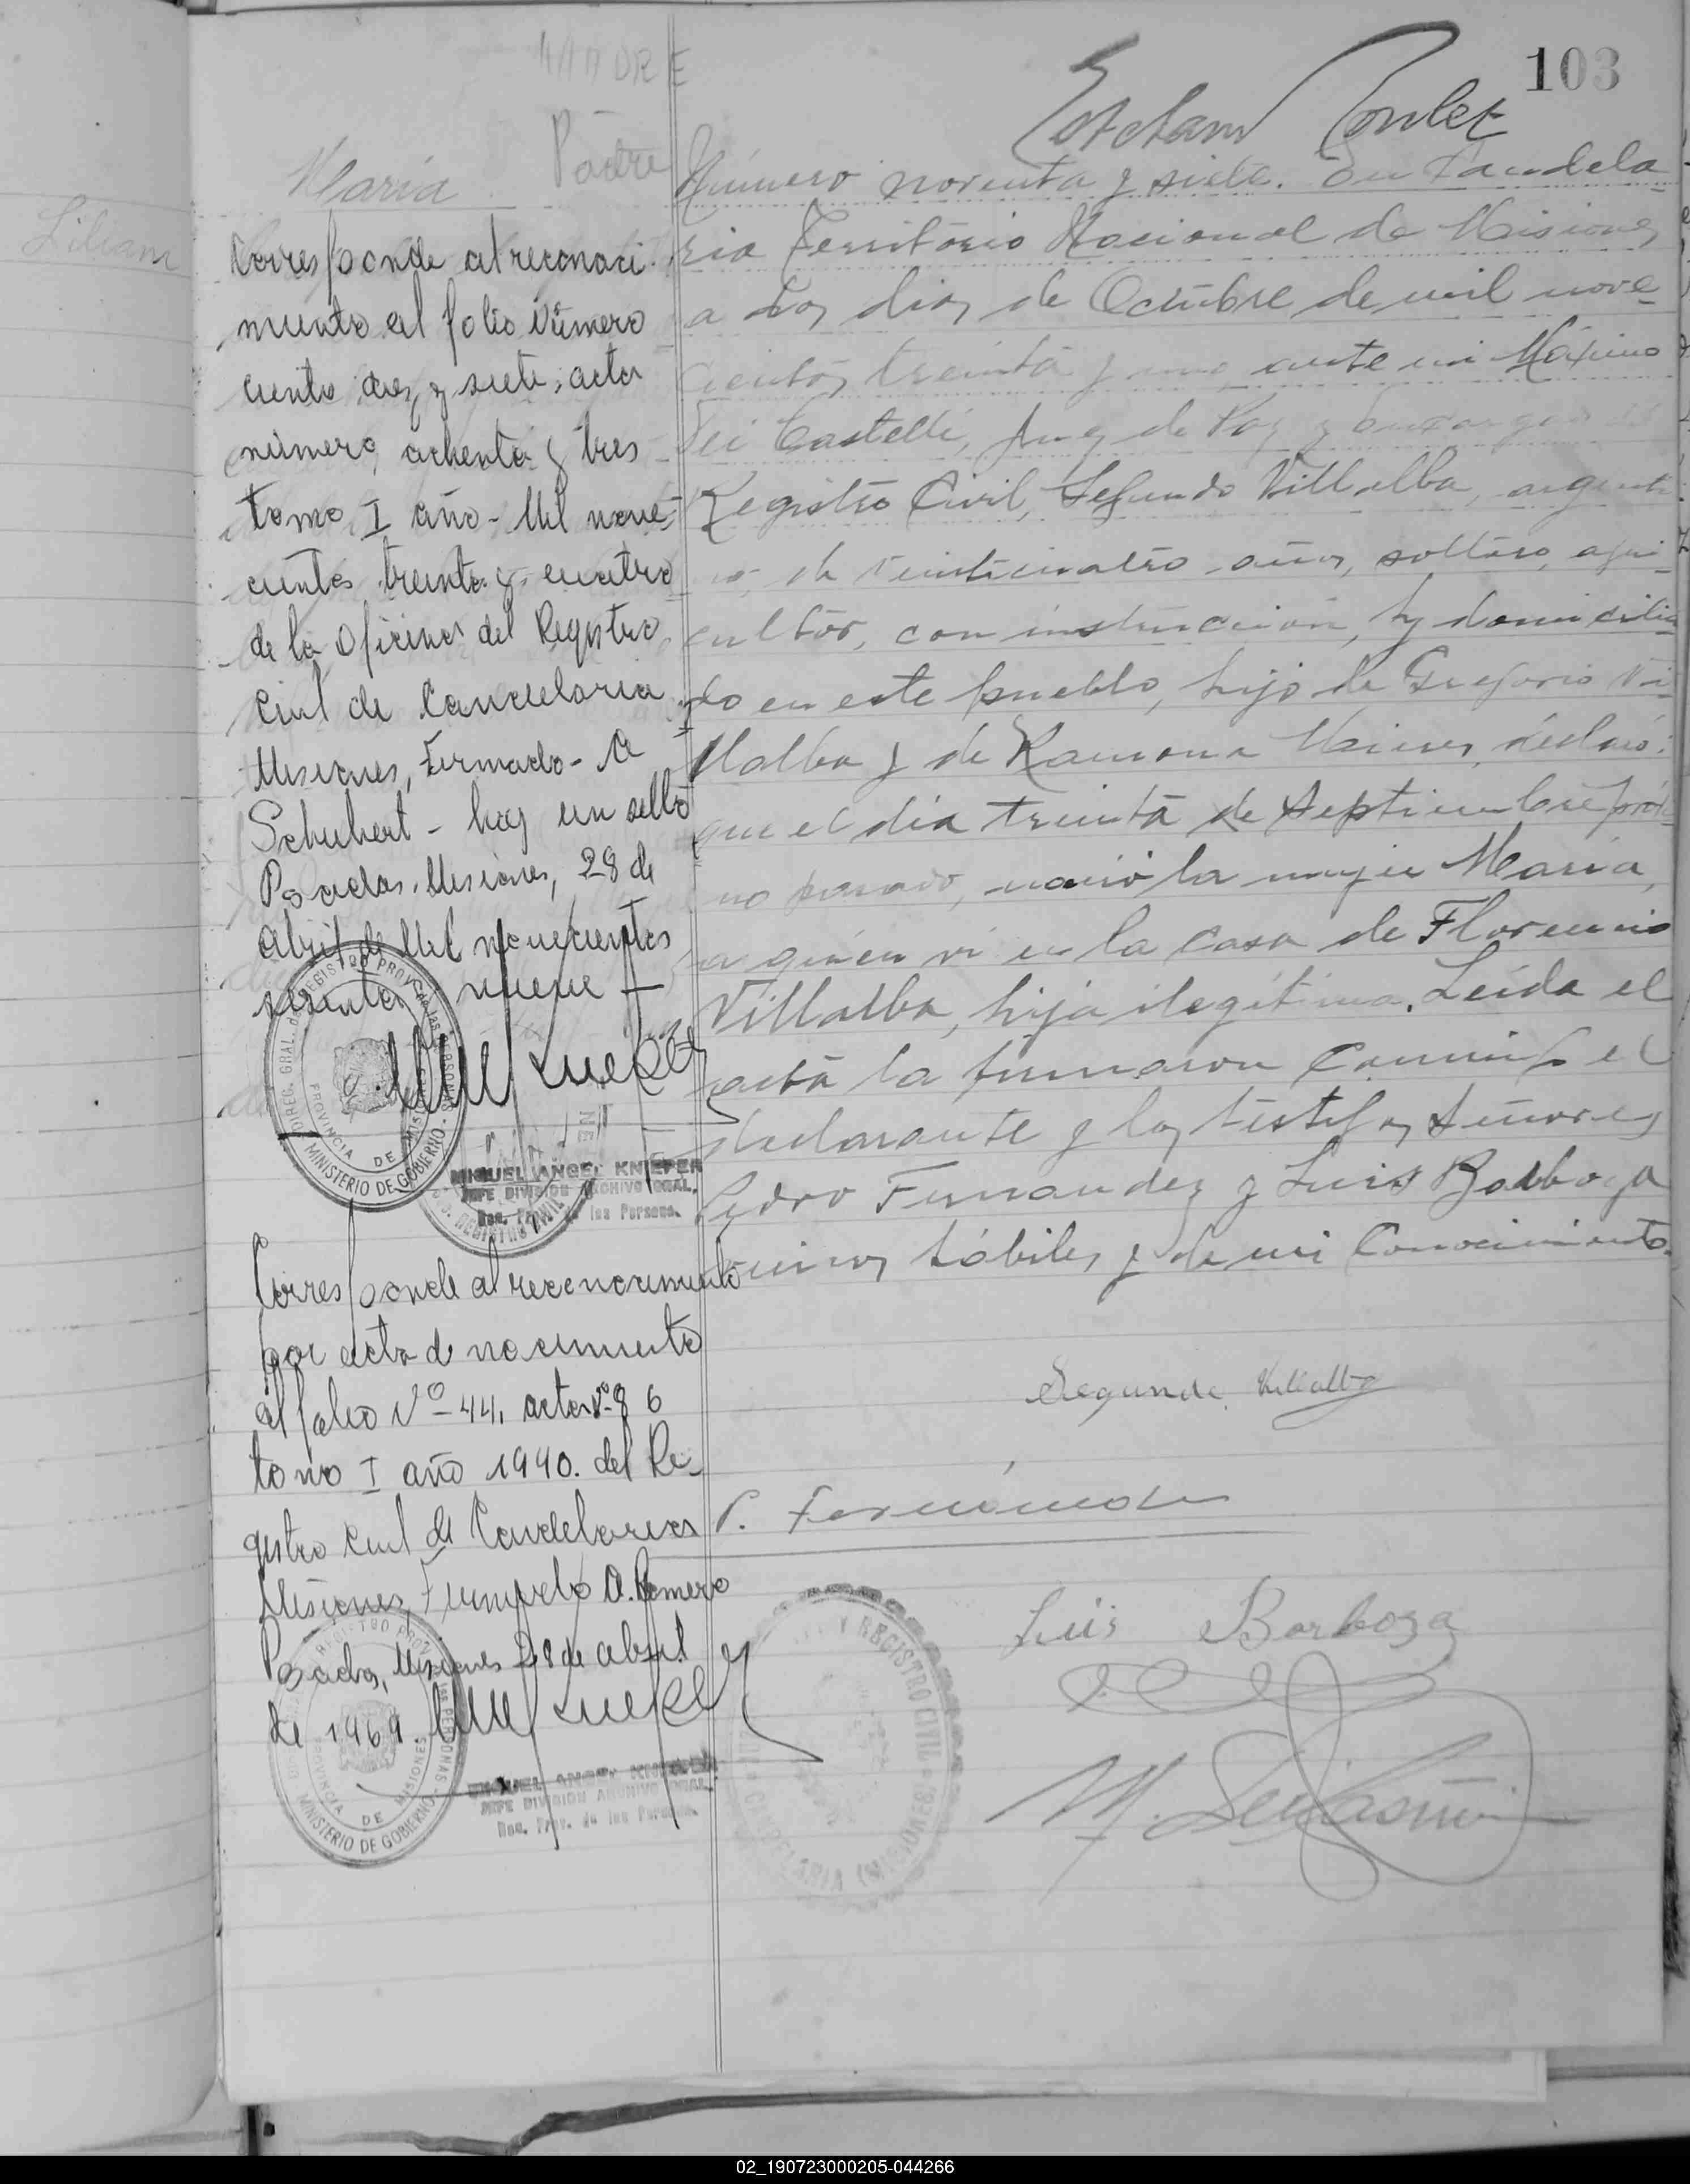 103
MADRE
Padre
María
Lilian
Corresponde al reconoci-
miento al folio Número
ciento diez y siete, acta
número, ochenta y tres
tomo I año - Mil nove-
cientos treinta y cuatro
de la Oficina del Registro
Civil de Candelaria
Misiones, Firmado - A
Schubert - hay un sello
Posadas, Misiones, 28 de
Abril de Mil novecientos
sesenta nueve —
DIREG. GRAL. del REGISTRO PROV. de las PERSONAS
PROVINCIA DE MISIONES
MINISTERIO DE GOBIERNO
MIGUEL ANGEL KNIEPER
JEFE DIVISION ARCHIVO GRAL.
Reg. Prov. de las Persons.
Corresponde al reconocimiento
por acta de nacimiento
al folio Nº 44, acta Nº 86
tomo I año 1940. del Re-
gistro Civil de Candelaria
Misiones, Firmado A. Romero
Posadas, Misiones 28 de abril
de 1969
REGISTRO PROV. de las PERSONAS
PROVINCIA DE MISIONES
MINISTERIO DE GOBIERNO
MIGUEL ANGEL KNIEPER
JEFE DIVISION ARCHIVO GRAL.
Reg. Prov. de las Persons.
Número noventa y siete. En Candela-
ria Territorio Nacional de Misiones
a dos dias de Octubre de mil nove-
cientos treinta y uno, ante mi Máximo
Castelli, Juez de Paz y Encargado
Registro Civil, Segundo Villalba, argenti
no, de veinticuatro años, soltero, agri-
cultor, con instrucción, y domicilia-
do en este pueblo, hijo de Gregorio Vi-
llalba y de Ramona declaró:
que el día treinta de Septiembre próxi
mo pasado, nació la mujer María,
a quien vi en la casa de Florencio
Villalba, hija ilegítima. Leída el
acta la firmaron Conmigo el
declarante y los testigos Señores
Pedro Fernandez y Luis Barboza
hábiles y de mi Conocimiento.
Segundo Villalba
P. Fernández
Luis Barboza
Y REGISTRO CIVIL
CANDELARIA (MISIONES)
02_190723000205-044266